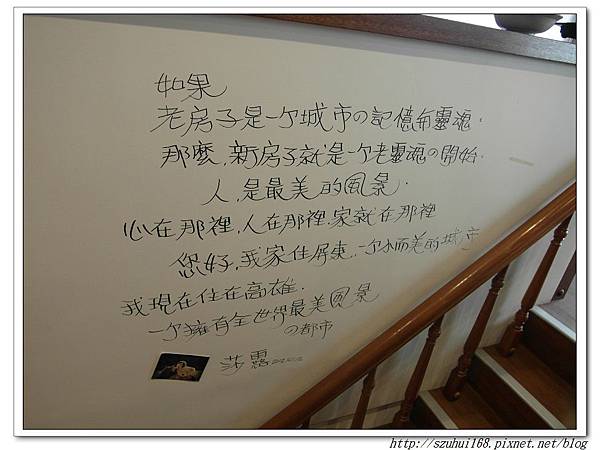 如果
老房子是一个城市の記憶和靈魂.
那麼,新房子就是一个老靈魂の開始.
人,是最美的風景.
心在那裡,人在那裡.家就在那裡
您好,我家住屏東,一个小而美的城市
我現在住在高雄.
一个擁有全世界最美風景
の都市
莎露
http://szuhui168.pixnet.net/blog